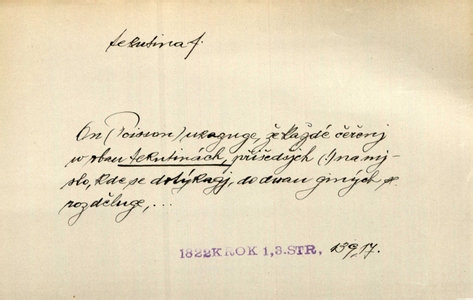 tekutina f.
On (Poisson) ukazuge, že každé čeřenj
w obau tekutinách, přišedších (!) na mj-
sto, kde se dotýkagj, do dwau giných se
rozděluge, ...
1822 KROK 1, 3. STR, 139, 17.